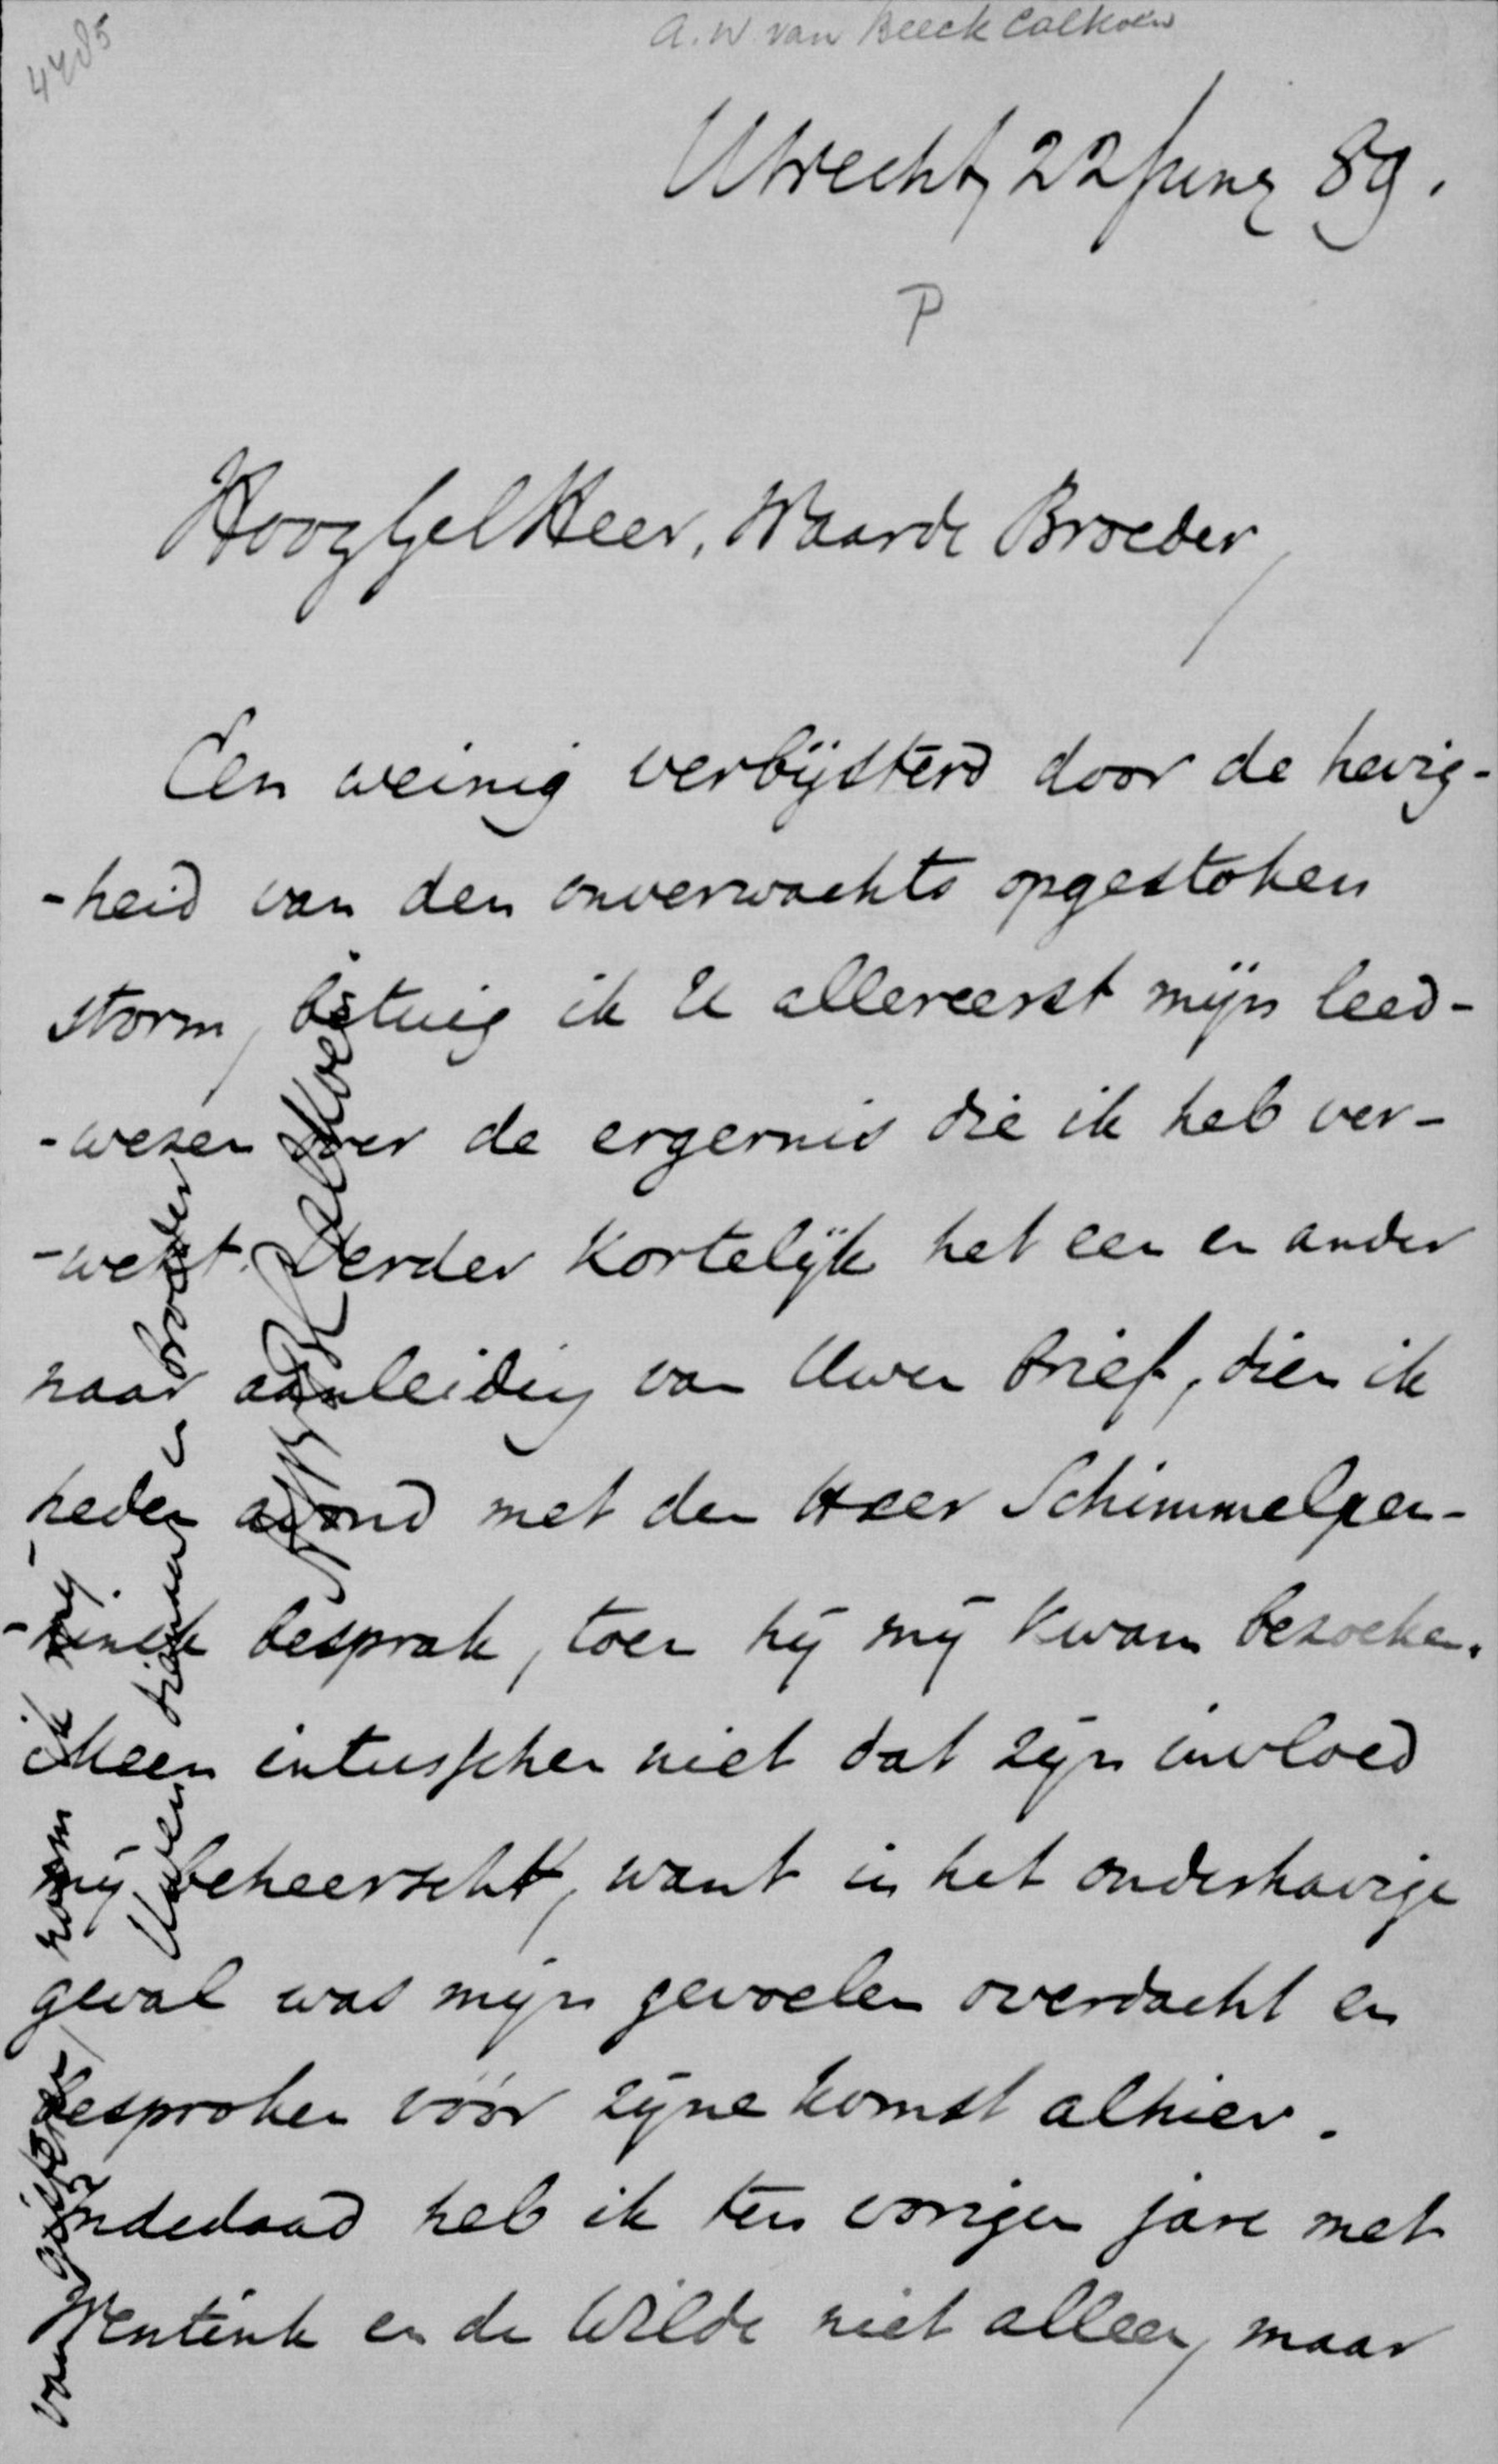 4485
A. W van Beeck Calkoen
Utrecht, 22 Juny 89.
P
HooggelHeer, Waarde Broeder,
Een weinig verbijsterd door de hevig-
-heid van den onverwachts opgestoken
storm, betuig ik U allereerst mijn leed-
-wezen over de ergernis die ik heb ver-
-wekt. Verder kortelijk het een en ander
naar aanleiding van Uwen brief, dien ik
heden avond met den Heer Schimmelpen-
-ninck besprak, toen hij mij kwam bezoeken.
Meen intusschen niet dat zijn invloed
mij beheerscht, want in het onderhavige
geval was mijn gevoelen overdacht en
besproken vóór zijne komst alhier.
Inderdaad heb ik ten vorigen jare met
Wentink en de Wilde niet alleen, maar
van gisteren, noem ik mij
Uwen dienaar en broeder
v Beeck Calkoen